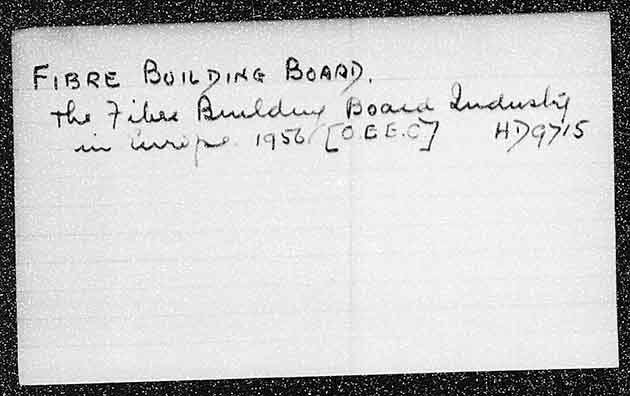 FIBRE BUILDING BOARD.
The Fibre Building Board Industry
in Europe. 1956 [O.E.E.C] HD9715